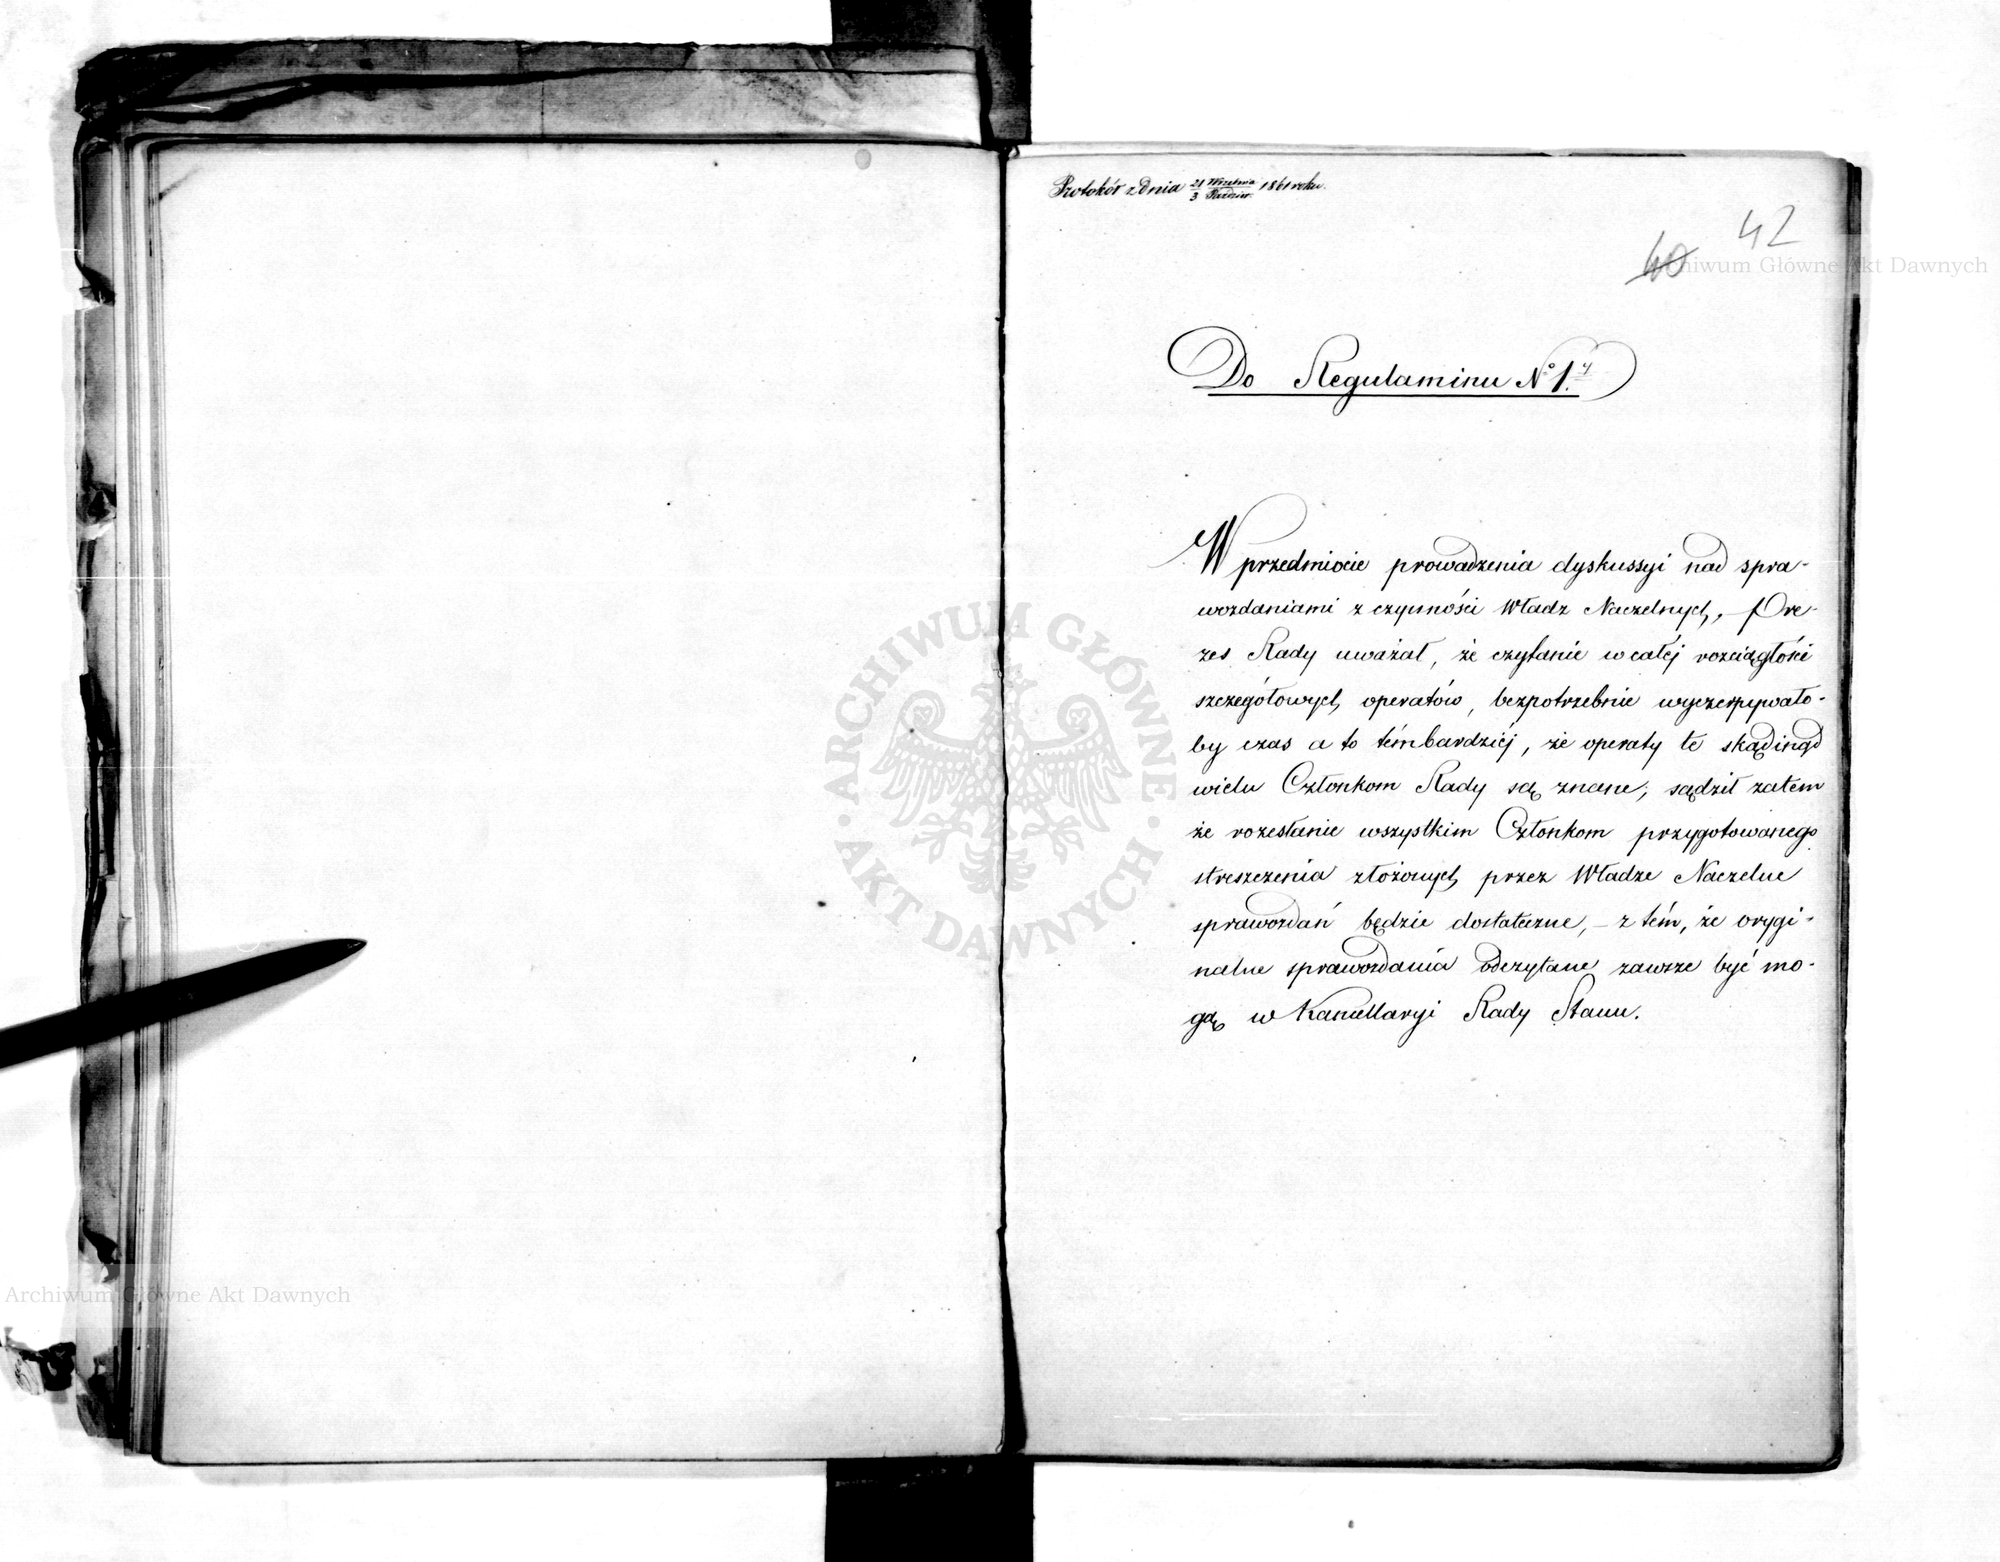 Protokół z dnia 21 Września / 3 Paździer. 1861 roku.
42
40
Do Regulaminu No 1.
W przedmiocie prowadzenia dyskussyi nad spra-
wozdaniami z czynności Władz Naczelnych, – Pre-
zes Rady uważał, że czytanie w całéj rozciągłości
szczegółowych operatów, bezpotrzebnie wyczerpywało-
by czas a to témbardziéj, że operaty te skądinąd
wielu Członkom Rady są znane; sądził zatem
że rozesłanie wszystkim Członkom przygotowanego
streszczenia złożonych przez Władze Naczelne
sprawozdań będzie dostateczne, – z tém, że orygi-
nalne sprawozdania odczytane zawsze być mo-
gą w Kancellaryi Rady Stanu.
Archiwum Główne Akt Dawnych
ARCHIWUM GŁÓWNE · AKT DAWNYCH ·
Archiwum Główne Akt Dawnych